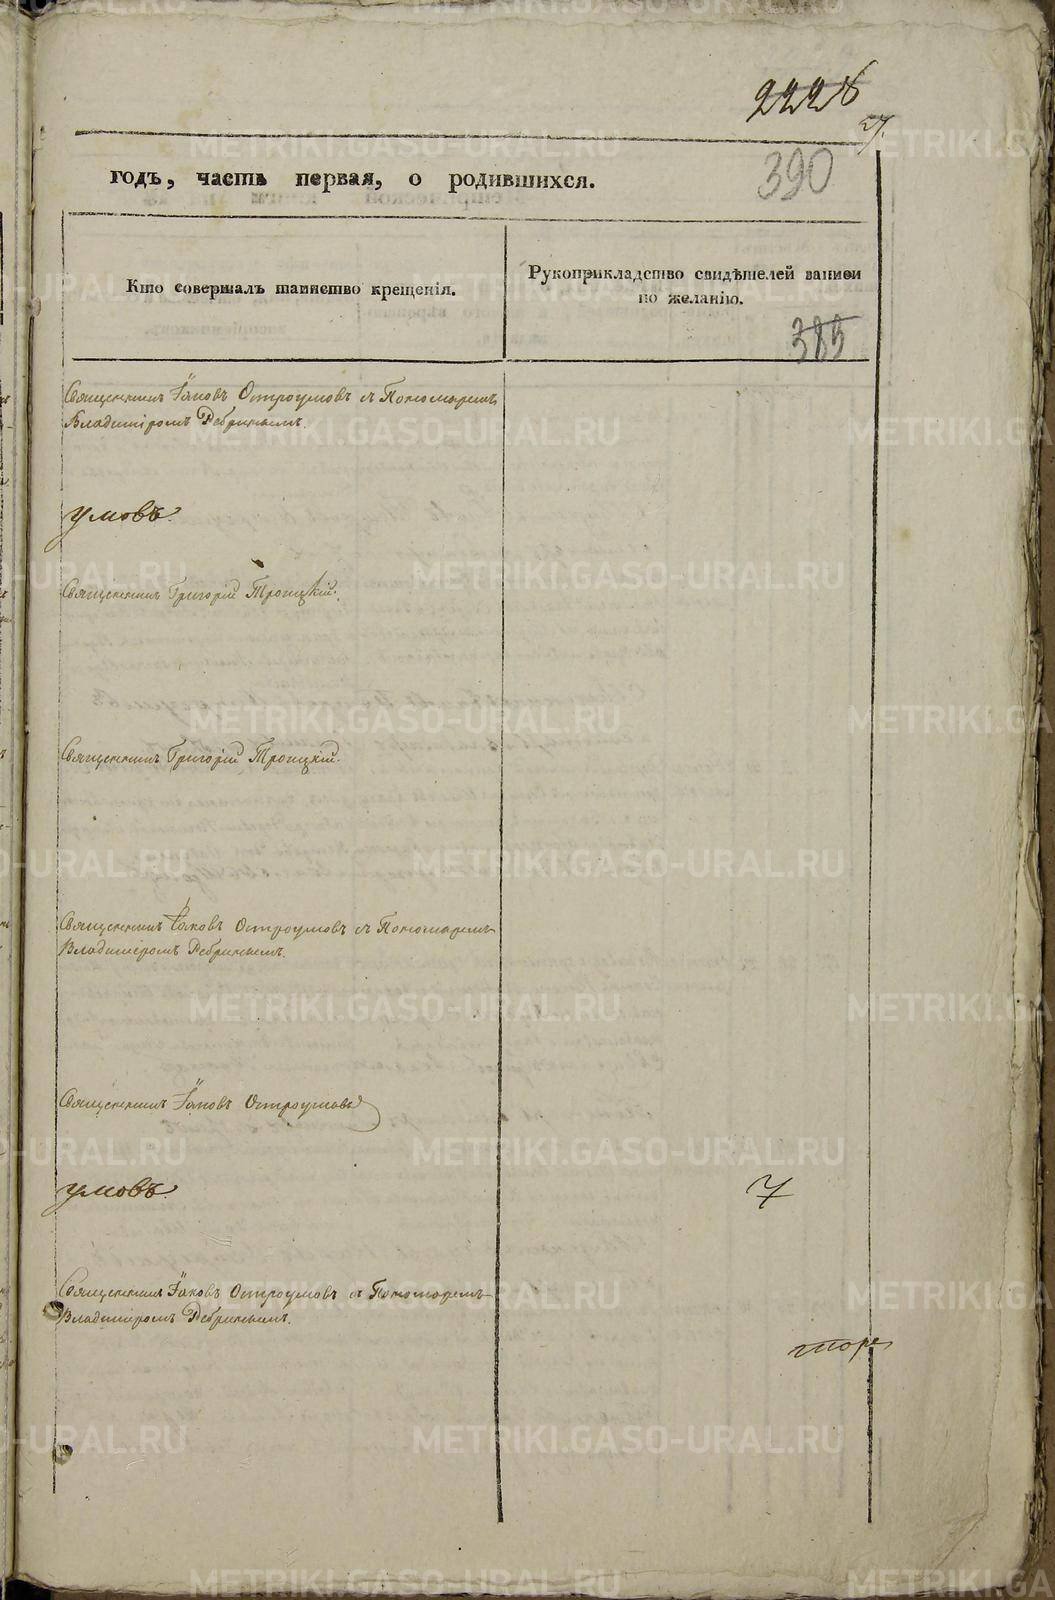 2228
27.
390
годъ, часть первая, о родившихся.
Кто совершалъ таинство крещенія.
Рукоприкладство свидѣтелей записи
по желанію.
385
Священникъ Іаковъ Остроумовъ съ Пономаремъ
Владиміромъ Ребринымъ.
умовъ.
Священникъ Григорій Троицкій.
Священникъ Григорій Троицкій.
Священникъ Іаковъ Остроумовъ съ Пономаремъ
Владиміромъ Ребринымъ.
Священникъ Іаковъ Остроумовъ
умовъ.
7
Священникъ Іаковъ Остроумовъ съ Пономаремъ
Владиміромъ Ребринымъ.
METRIKI.GASO-URAL.RU